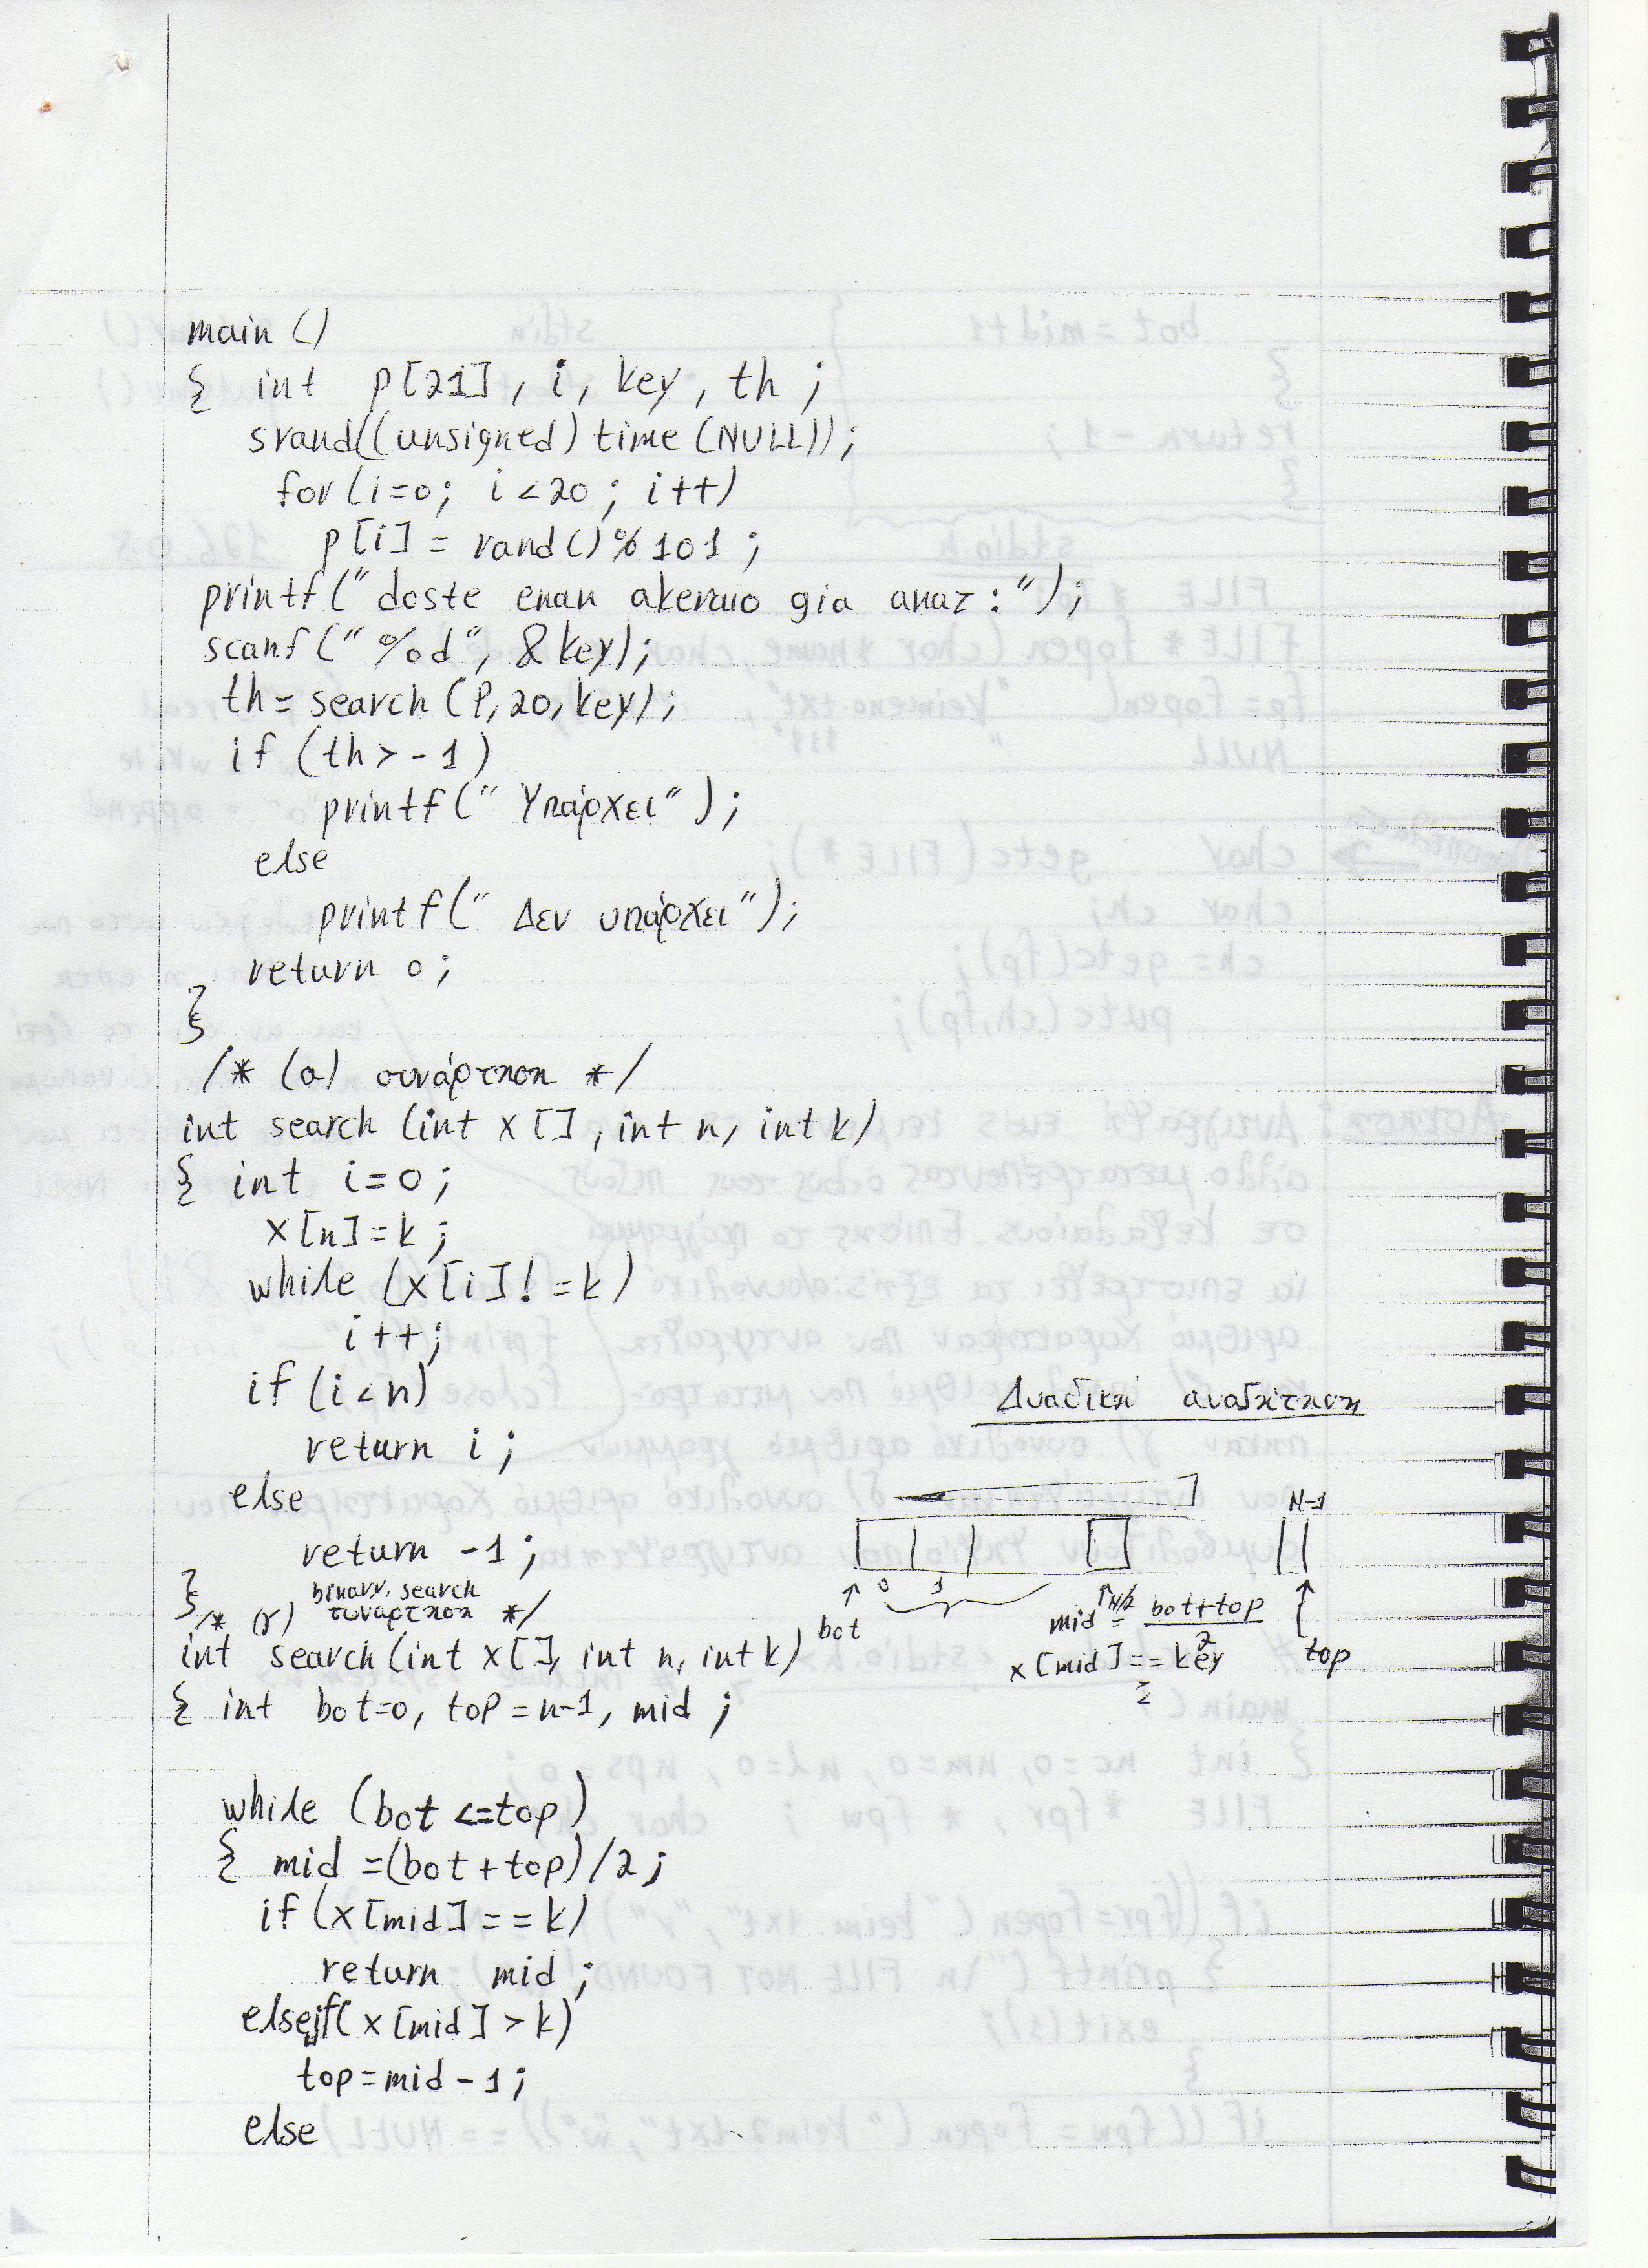 main ()
{ int p[21], i, key, th ;
srand((unsigned) time (NULL));
for (i=0; i<20; i++)
p[i] = rand()%101;
printf("doste enan akeraio gia anaz:");
scanf("%d", &key);
th = search (P, 20, key);
if (th > -1)
printf("Υπάρχει");
else
printf("Δεν υπάρχει");
return 0;
}
/* (α) συνάρτηση */
int search (int x[], int n, int k)
{ int i=0;
x[n]=k;
while (x[i]!=k)
i++;
if (i<n)
return i;
else
return -1;
}
/* (γ) binary search
συνάρτηση */
int search (int x[], int n, int k)
{ int bot=0, top=n-1, mid;
while (bot <=top)
{ mid =(bot+top)/2;
if (x[mid]==k)
return mid;
else if( x[mid] > k)
top=mid-1;
else
Δυαδική αναζήτηση
N-1
0 1
bot
N/2
mid = bot+top
2
top
x[mid]==key